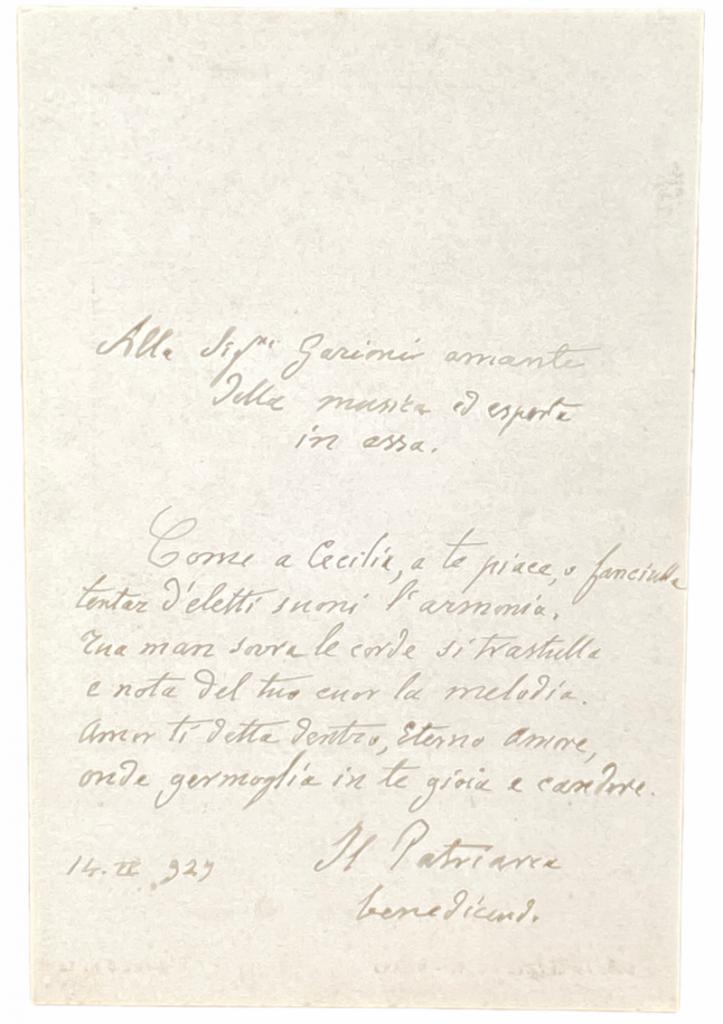 Alla Sig.na Garioni amante
della musica ed esperta
in essa.
Come a Cecilia, a te piace, o fanciulla
tentar d'eletti suoni l'armonia.
Tua man sovra le corde si trastulla
e nota del tuo cuor la melodia.
Amor ti detta dentro, Eterno Amore,
onde germoglia in te gioia e candore.
14. II 929
Il Patriarca
benedicend.